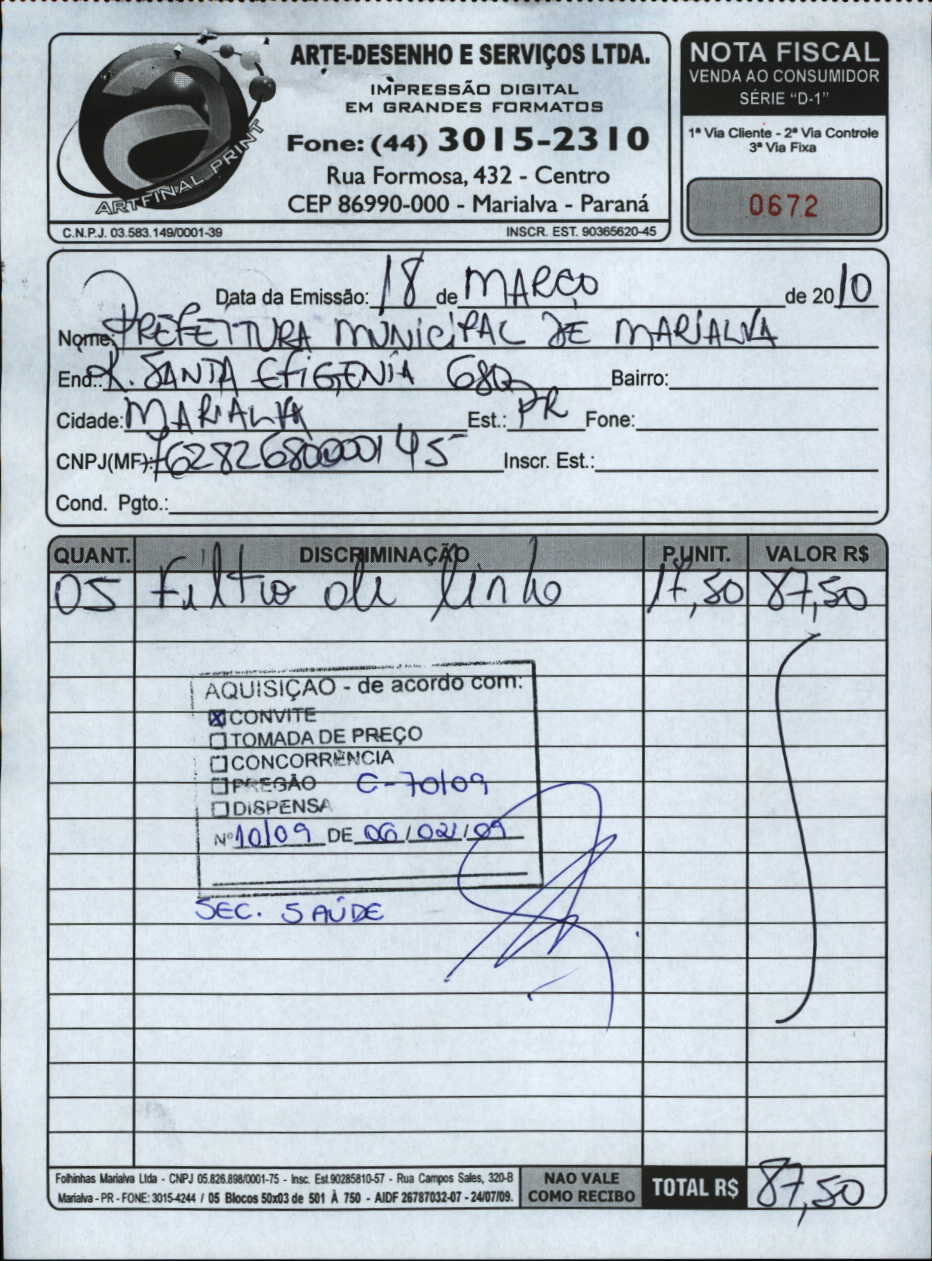 ARTE-DESENHO E SERVIÇOS LTDA.
IMPRESSÃO DIGITAL
EM GRANDES FORMATOS
Fone: (44) 3015-2310
Rua Formosa, 432 - Centro
CEP 86990-000 - Marialva - Paraná
ARTFINAL PRINT
C.N.P.J. 03.583.149/0001-39 INSCR. EST. 90365620-45
NOTA FISCAL
VENDA AO CONSUMIDOR
SÉRIE "D-1"
1ª Via Cliente - 2ª Via Controle
3ª Via Fixa
0672
Data da Emissão: 18 de MARÇO de 2010
Nome: PREFEITURA MUNICIPAL DE MARIALVA
End.: R. SANTA EFIGENIA 680 Bairro:
Cidade: MARIALVA Est.: PR Fone:
CNPJ(MF): 76282680000145 Inscr. Est.:
Cond. Pgto.:
QUANT. DISCRIMINAÇÃO P.UNIT. VALOR R$
05 Filtro de linha 17,50 87,50
AQUISIÇAO - de acordo com:
CONVITE
TOMADA DE PREÇO
CONCORRÊNCIA
PREGÃO C-70/09
DISPENSA
Nº 10/09 DE 06/02/09
SEC. SAÚDE
Folhinhas Marialva Ltda - CNPJ 05.826.898/0001-75 - Insc. Est.90285810-57 - Rua Campos Sales, 320-B
Marialva - PR - FONE: 3015-4244 / 05 Blocos 50x03 de 501 À 750 - AIDF 26787032-07 - 24/07/09.
NAO VALE
COMO RECIBO
TOTAL R$ 87,50